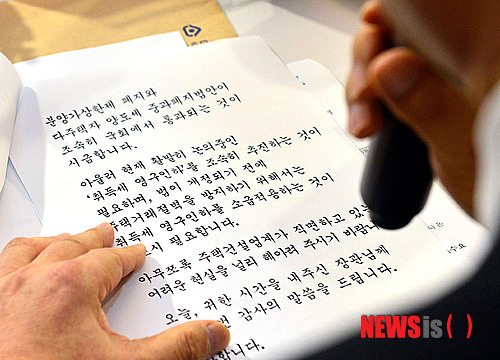 분양가상한제 폐지와
다주택자 양도세 중과폐지법안이
조속히 국회에서 통과되는 것이
시급합니다.
아울러 현재 활발히 논의중인
'취득세 영구인하'를 조속히 추진하는 것이
필요하며, 법이 개정되기 전에
주택거래절벽을 방지하기 위해서는
취득세 영구인하를 소급적용하는 것이
필요합니다.
아무쪼록 주택건설업계가 직면하고 있는
어려운 현실을 널리 헤아려 주시기 바랍니
오늘, 귀한 시간을 내주신 장관님께
감사의 말씀을 드립니다.
합니다.
NEWSis( )